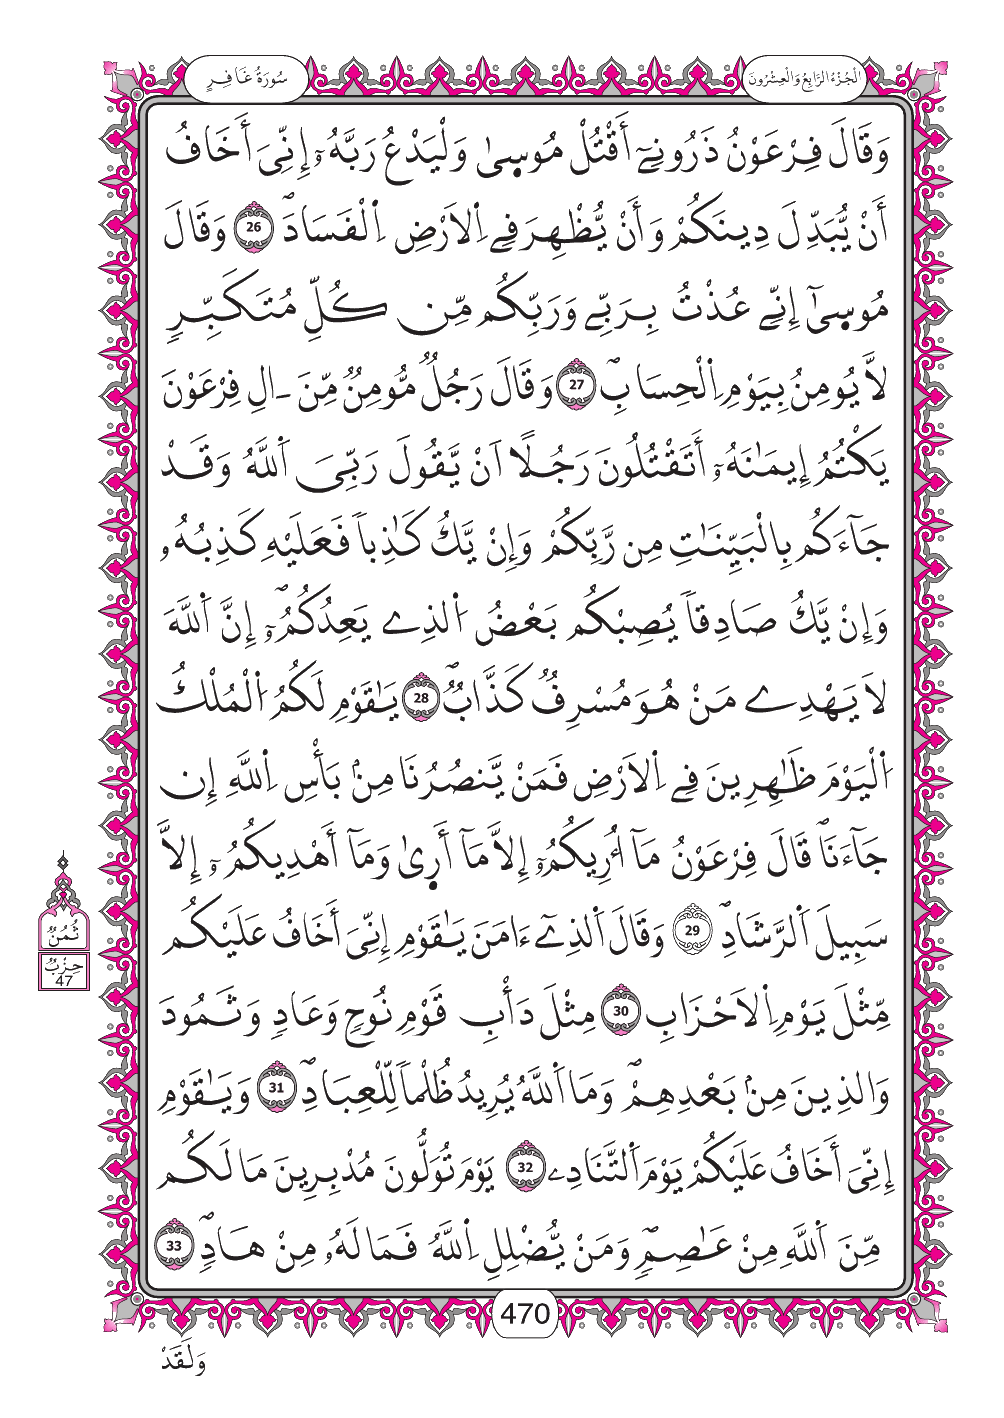 سُورَةُ غَافِرٍ
اَلْجُزْءُ الرَّابِعُ وَالْعِشْرُونَ
وَقَالَ فِرْعَوْنُ ذَرُونِےٓ أَقْتُلْ مُوسۭىٰ وَلْيَدْعُ رَبَّهُۥٓ إِنِّيَ أَخَافُ
أَنْ يُّبَدِّلَ دِينَكُمْ وَأَنْ يُّظْهِرَ فِے اِ۬لَارْضِ اِ۬لْفَسَادَۖ 26 وَقَالَ
مُوسۭىٰٓ إِنِّے عُذْتُ بِرَبِّے وَرَبِّكُم مِّن كُلِّ مُتَكَبِّرٖ
لَّا يُومِنُ بِيَوْمِ اِ۬لْحِسَابِۖ 27 وَقَالَ رَجُلٞ مُّومِنٞ مِّنَ ـ۬الِ فِرْعَوْنَ
يَكْتُمُ إِيمَٰنَهُۥٓ أَتَقْتُلُونَ رَجُلاً اَنْ يَّقُولَ رَبِّيَ اَ۬للَّهُ وَقَدْ
جَآءَكُم بِالْبَيِّنَٰتِ مِن رَّبِّكُمْ وَإِنْ يَّكُ كَٰذِباٗ فَعَلَيْهِ كَذِبُهُۥ
وَإِنْ يَّكُ صَادِقاٗ يُصِبْكُم بَعْضُ اُ۬لذِے يَعِدُكُمُۥٓۖ إِنَّ اَ۬للَّهَ
لَا يَهْدِے مَنْ هُوَ مُسْرِفٞ كَذَّابٞۖ 28 يَٰقَوْمِ لَكُمُ اُ۬لْمُلْكُ
اُ۬لْيَوْمَ ظَٰهِرِينَ فِے اِ۬لَارْضِ فَمَنْ يَّنصُرُنَا مِنۢ بَأْسِ اِ۬للَّهِ إِن
جَآءَنَاۖ قَالَ فِرْعَوْنُ مَآ أُرِيكُمُۥٓ إِلَّا مَآ أَرۭىٰ وَمَآ أَهْدِيكُمُۥٓ إِلَّا
سَبِيلَ اَ۬لرَّشَادِۖ 29 وَقَالَ اَ۬لذِےٓ ءَامَنَ يَٰقَوْمِ إِنِّيَ أَخَافُ عَلَيْكُم
مِّثْلَ يَوْمِ اِ۬لَاحْزَابِ 30 مِثْلَ دَأْبِ قَوْمِ نُوحٖ وَعَادٖ وَثَمُودَ
وَالذِينَ مِنۢ بَعْدِهِمْۖ وَمَا اَ۬للَّهُ يُرِيدُ ظُلْماٗ لِّلْعِبَادِۖ 31 وَيَٰقَوْمِ
إِنِّيَ أَخَافُ عَلَيْكُمْ يَوْمَ اَ۬لتَّنَادِۦ 32 يَوْمَ تُوَلُّونَ مُدْبِرِينَ مَا لَكُم
مِّنَ اَ۬للَّهِ مِنْ عَٰصِمٖۖ وَمَنْ يُّضْلِلِ اِ۬للَّهُ فَمَا لَهُۥ مِنْ هَادٖۖ 33
ثُمُنٌ
حِزْبٌ
47
470
وَلَقَدْ